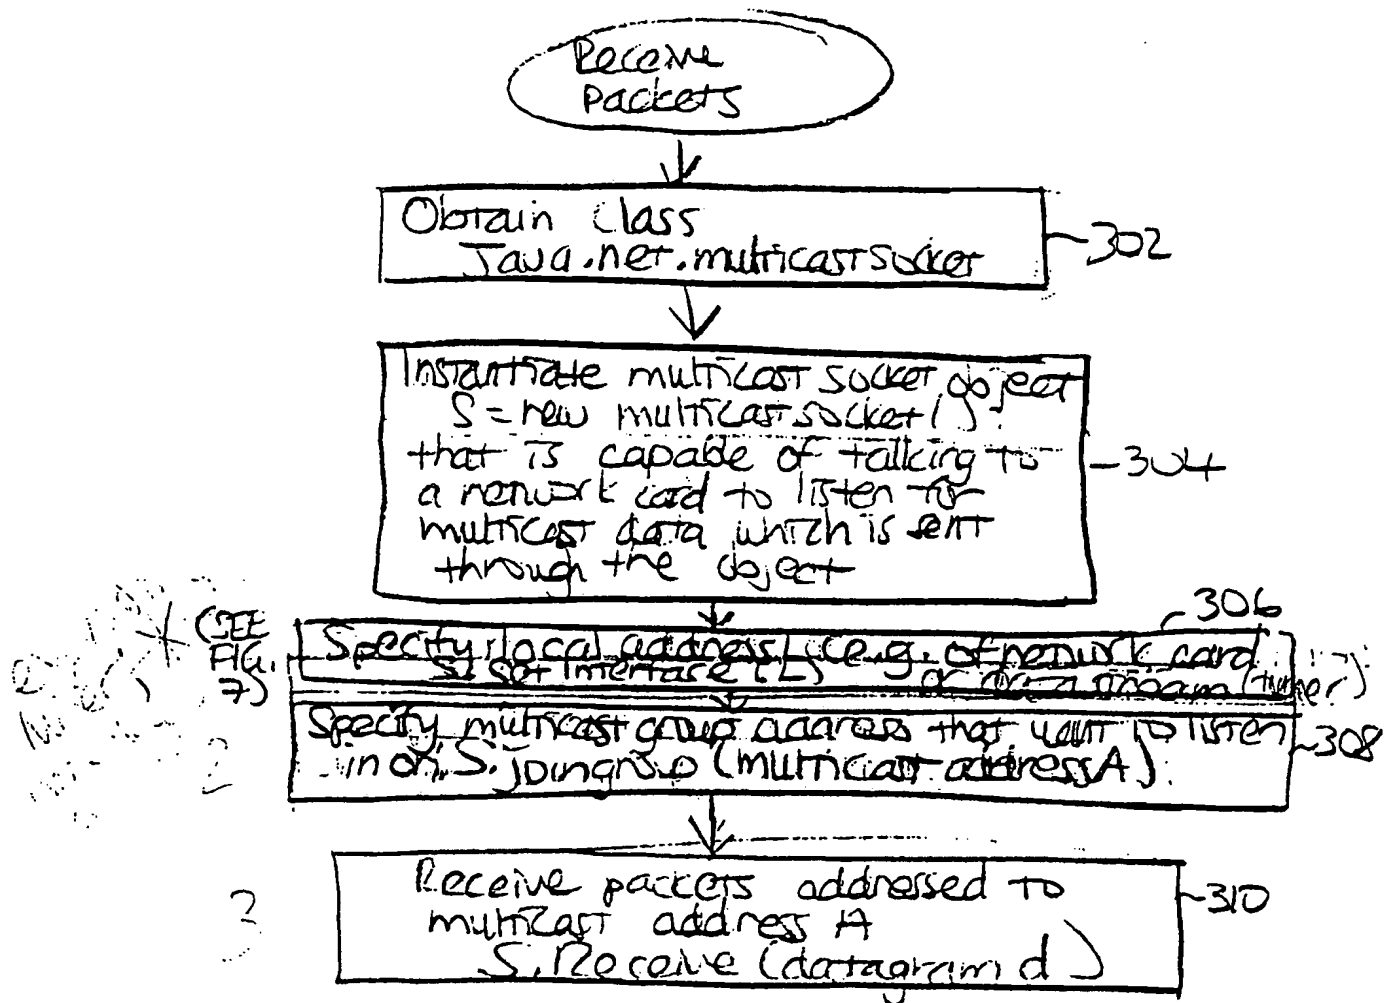 Receive
packets
Obtain Class
Java.net.multicastsocket
302
Instantiate multicast socket object
S = new multicastsocket( )
that is capable of talking to
a network card to listen for
multicast data which is sent
through the object
304
306
(SEE
FIG.
7)
Specify local address L (e.g. of network card
S. Set Interface (L)
or data stream (tuner)
Specify multicast group address that want to listen
in on. S. joingroup (multicast address A)
308
2
Receive packets addressed to
multicast address A
S. Receive (datagram d)
310
3